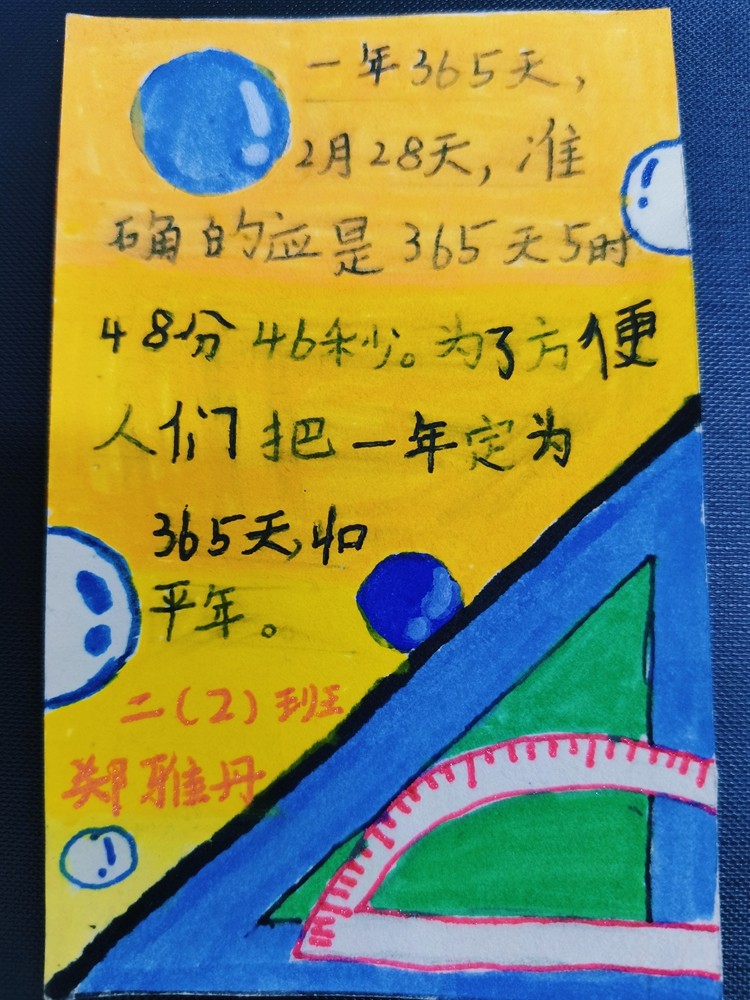 一年365天,
2月28天,准
确的应是365天5时
48分46秒。为了方便
人们把一年定为
365天,归
平年。
二(2)班
郑雅丹